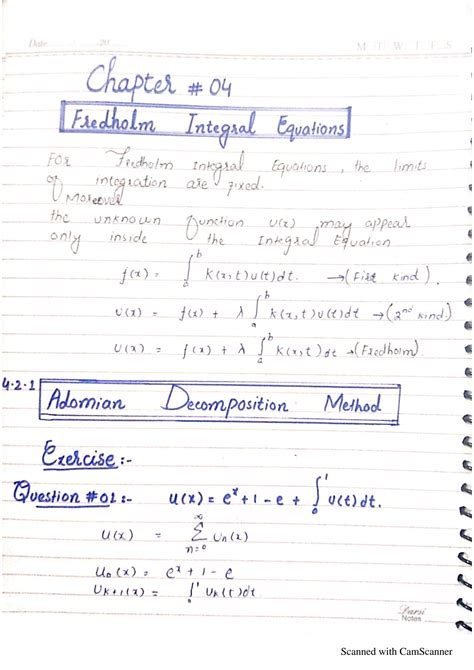 Date 20
M T W T F S
Chapter # 04
Fredholm Integral Equations
For Fredholm Integral Equations, the limits
of integration are fixed.
Moreover
the unknown function u(x) may appear
only inside the Integral Equation
f(x) = ∫ₐᵇ K(x,t)u(t)dt. →(First kind).
u(x) = f(x) + λ ∫ₐᵇ K(x,t)u(t)dt →(2nd kind)
u(x) = f(x) + λ ∫ₐᵇ K(x,t)dt →(Fredholm).
4.2.1
Adomian Decomposition Method
Exercise:-
Question #01:- u(x) = eˣ + 1 - e + ∫₀¹ u(t)dt.
u(x) = ∑ₙ₌₀^∞ uₙ(x)
u₀(x) = eˣ + 1 - e
uₖ₊₁(x) = ∫₀¹ uₖ(t)dt
Parsi
Notes
Scanned with CamScanner